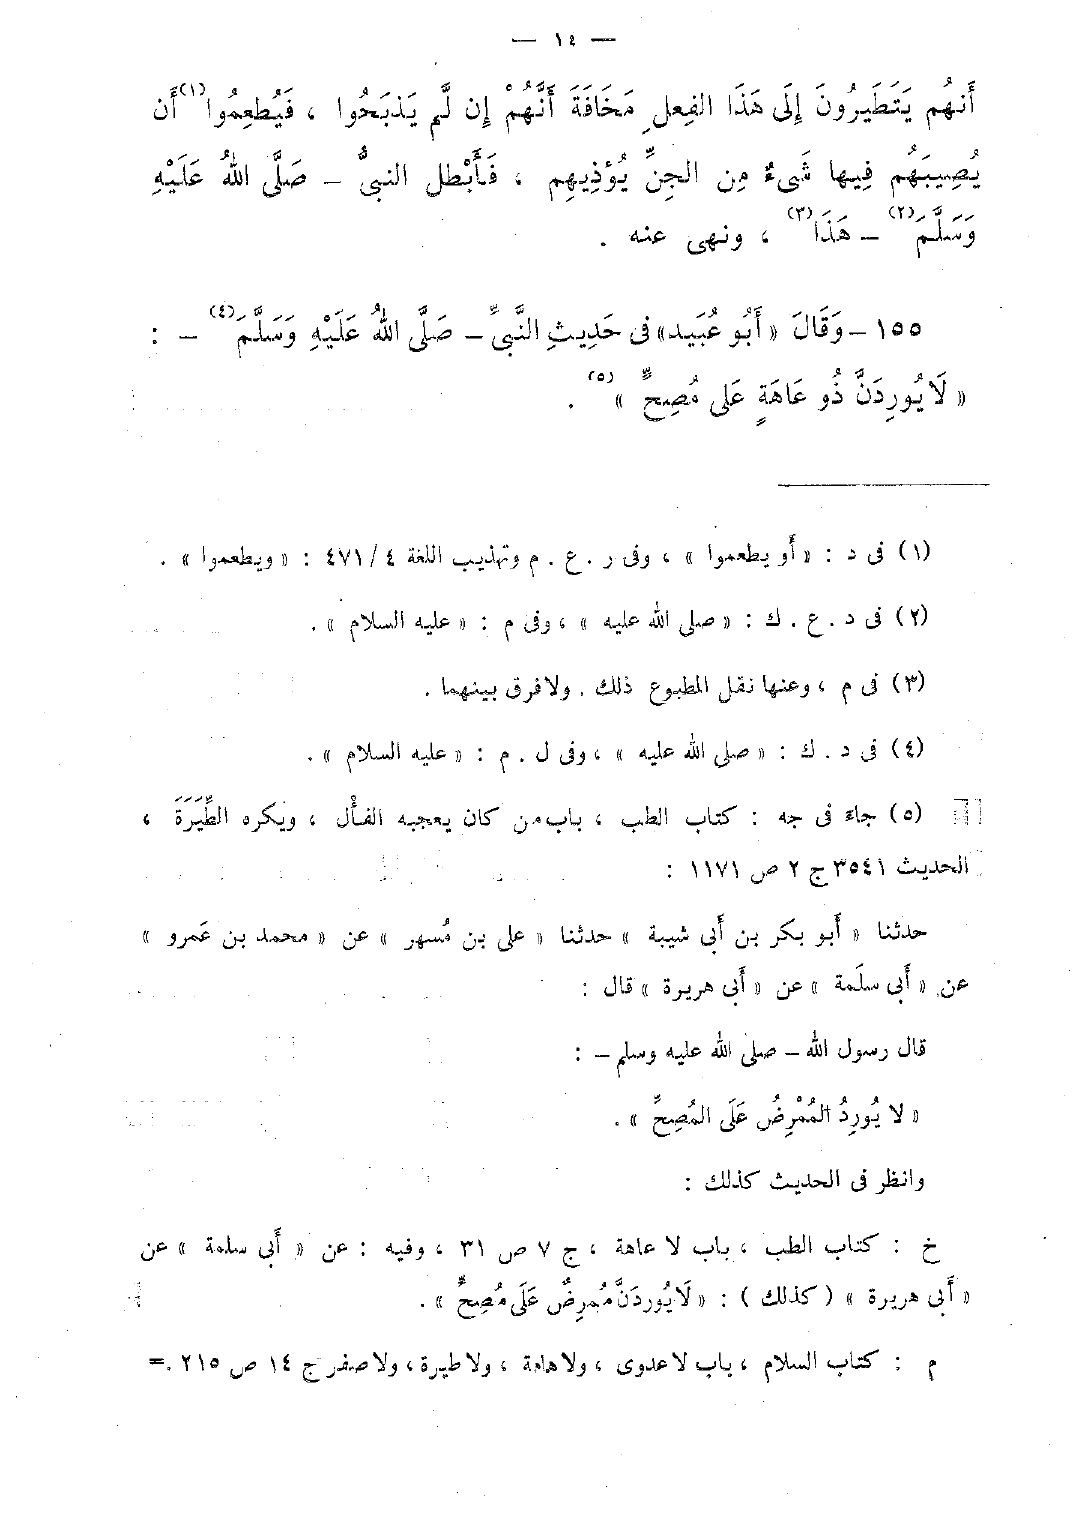 — ١٤ —
أَنهُم يَتَطَيرُونَ إِلَى هَذَا الفِعلِ مَخَافَةَ أَنَّهُمْ إِن لَّم يَذبَحُوا ، فَيُطعِمُوا (١) أَن
يُصِيبَهُم فِيها شَىءٌ مِن الجِنِّ يُؤذِيهِم ، فَأَبْطل النبىُّ – صَلَّى اللهُ عَلَيْهِ
وَسَلَّمَ (٢) – هَذَا (٣) ، ونهى عنه .
١٥٥ – وَقَالَ « أَبُو عُبَيد» فى حَدِيثِ النَّبىِّ – صَلَّى اللهُ عَلَيْهِ وَسَلَّمَ (٤) – :
« لَا يُورِدَنَّ ذُو عَاهَةٍ عَلى مُصِحٍّ » (٥) .
(١) فى د : « أَو يطعموا » ، وفى ر . ع . م وتهذيب اللغة ٤ / ٤٧١ : « ويطعموا » .
(٢) فى د . ع . ك : « صلى الله عليه » ، وفى م : « عليه السلام » .
(٣) فى م ، وعنها نقل المطبوع ذلك . ولافرق بينهما .
(٤) فى د . ك : « صلى الله عليه » ، وفى ل . م : « عليه السلام » .
(٥) جاءَ فى جه : كتاب الطب ، باب من كان يعجبه الفأْل ، ويكره الطِّيَرَةَ ،
الحديث ٣٥٤١ ج ٢ ص ١١٧١ :
حدثنا « أَبو بكر بن أَبى شيبة » حدثنا « على بن مُسهر » عن « محمد بن عَمرو »
عن « أَبى سلَمة » عن « أَبى هريرة » قال :
قال رسول الله – صلى الله عليه وسلم – :
« لا يُورِدُ المُمْرِضُ عَلَى المُصِحِّ » .
وانظر فى الحديث كذلك :
خ : كتاب الطب ، باب لا عاهة ، ج ٧ ص ٣١ ، وفيه : عن « أَبى سلمة » عن
« أَبى هريرة » ( كذلك ) : « لَا يُورِدَنَّ مُمرِضٌ عَلَى مُصِحٍّ » .
م : كتاب السلام ، باب لا عدوى ، ولا هامة ، ولا طيرة ، ولا صفر ج ١٤ ص ٢١٥ .=